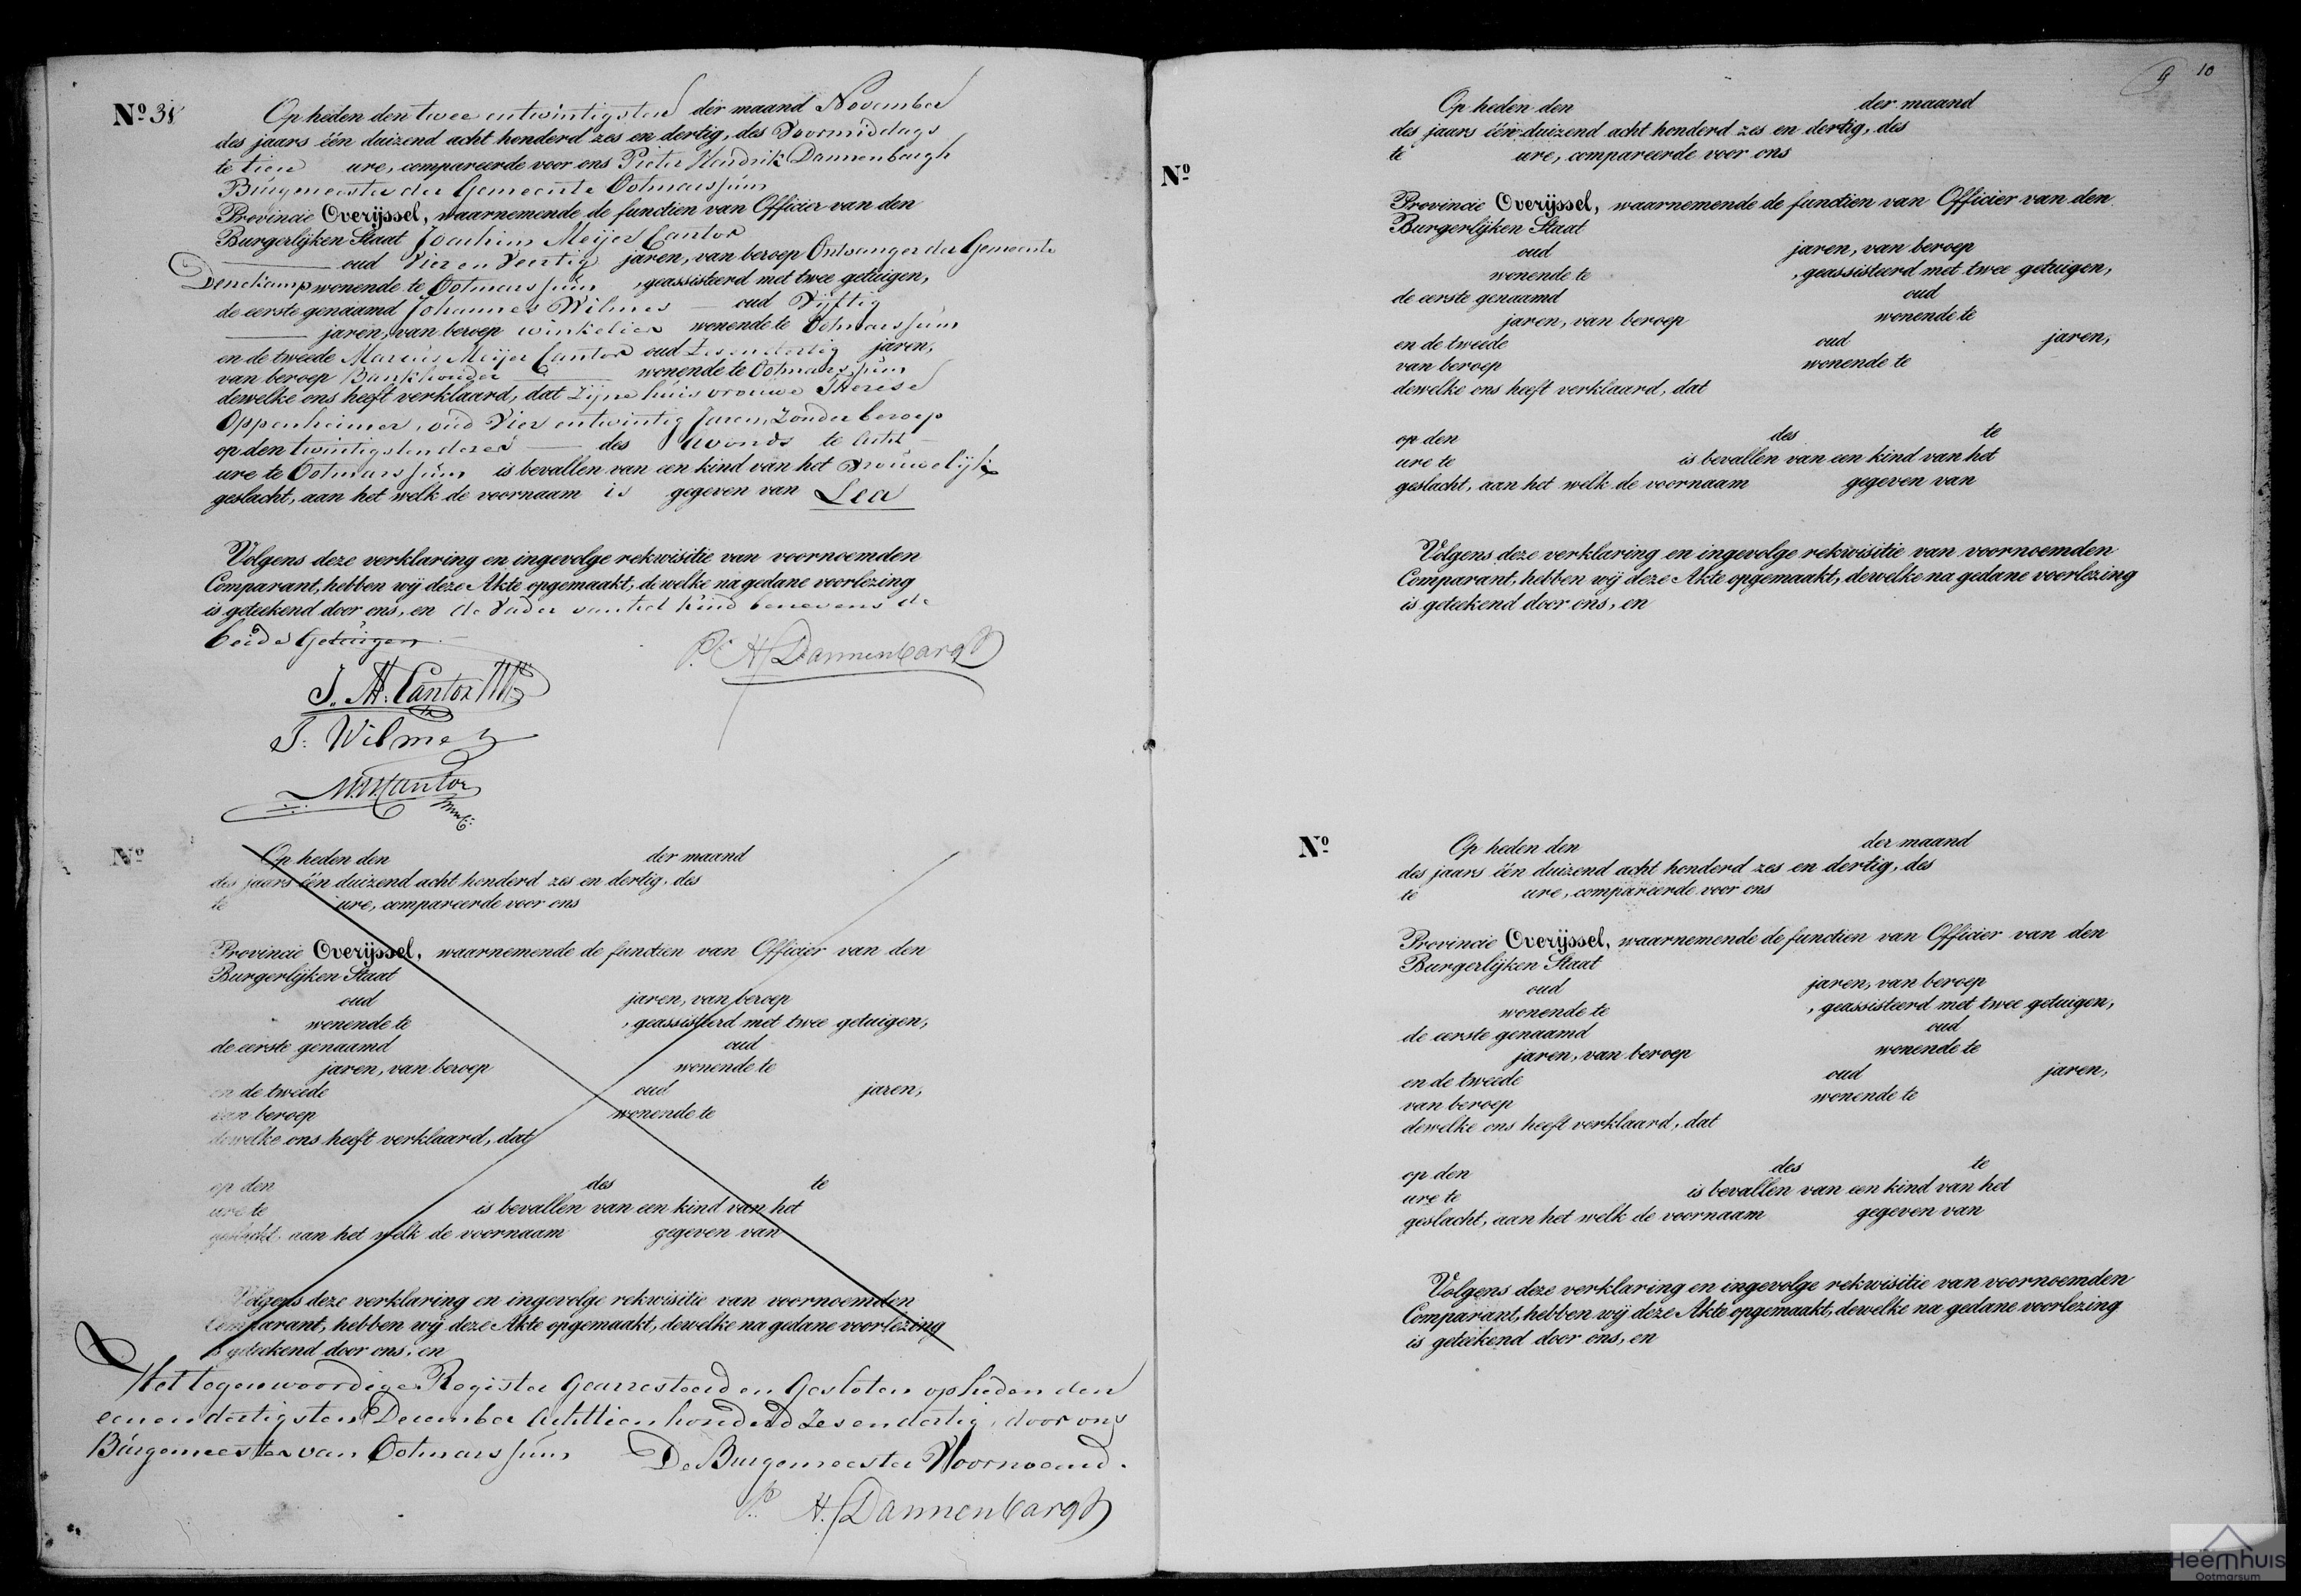 Nº 38
Op heden den twee entwintigsten der maand November
des jaars één duizend acht honderd zes en dertig, des Voormiddags
te tien ure, compareerde voor ons Pieter Hendrik Dannenbargh
Burgemeester der Gemeente Ootmarssum
Provincie Overijssel, waarnemende de functien van Officier van den
Burgerlijken Staat Joachim Meijer Cantor
oud Vier en Veertig jaren, van beroep Ontvanger der Gemeente
Denekamp wonende te Ootmarssum, geassisteerd met twee getuigen,
de eerste genaamd Johannes Wilmes oud Vijftig
jaren, van beroep winkelier wonende te Ootmarssum
en de tweede Marcus Meijer Cantor oud Zesendertig jaren,
van beroep Bankhouder wonende te Ootmarssum
dewelke ons heeft verklaard, dat Zijne huisvrouwe Therese
Oppenheimer, oud Vier entwintig Jaren, Zonder beroep
op den twintigsten dezer des Avonds te Acht
ure te Ootmarssum is bevallen van een kind van het Vrouwelijk
geslacht, aan het welk de voornaam is gegeven van Lea
Volgens deze verklaring en ingevolge rekwisitie van voornoemden
Comparant, hebben wij deze Akte opgemaakt, dewelke na gedane voorlezing
is geteekend door ons, en de Vader van het Kind benevens de
beide Getuigen
P. H. Dannenbargh
J. M. Cantor
J. Wilmes
M. M. Cantor
Nº
Op heden den der maand
des jaars één duizend acht honderd zes en dertig, des
te ure, compareerde voor ons
Provincie Overijssel, waarnemende de functien van Officier van den
Burgerlijken Staat
oud jaren, van beroep
wonende te , geassisteerd met twee getuigen,
de eerste genaamd oud
jaren, van beroep wonende te
en de tweede oud jaren,
van beroep wonende te
dewelke ons heeft verklaard, dat
op den des te
ure te is bevallen van een kind van het
geslacht, aan het welk de voornaam gegeven van
Volgens deze verklaring en ingevolge rekwisitie van voornoemden
Comparant, hebben wij deze Akte opgemaakt, dewelke na gedane voorlezing
is geteekend door ons, en
Het tegenwoordige Register Gearresteerd en Gesloten op heden den
eenendertigsten December Achttienhonderd Zesendertig, door ons
Burgemeester van Ootmarssum
De Burgemeester Voornoemd.
P. H. Dannenbargh
9 10
Nº
Op heden den der maand
des jaars één duizend acht honderd zes en dertig, des
te ure, compareerde voor ons
Provincie Overijssel, waarnemende de functien van Officier van den
Burgerlijken Staat
oud jaren, van beroep
wonende te , geassisteerd met twee getuigen,
de eerste genaamd oud
jaren, van beroep wonende te
en de tweede oud jaren,
van beroep wonende te
dewelke ons heeft verklaard, dat
op den des te
ure te is bevallen van een kind van het
geslacht, aan het welk de voornaam gegeven van
Volgens deze verklaring en ingevolge rekwisitie van voornoemden
Comparant, hebben wij deze Akte opgemaakt, dewelke na gedane voorlezing
is geteekend door ons, en
Nº
Op heden den der maand
des jaars één duizend acht honderd zes en dertig, des
te ure, compareerde voor ons
Provincie Overijssel, waarnemende de functien van Officier van den
Burgerlijken Staat
oud jaren, van beroep
wonende te , geassisteerd met twee getuigen,
de eerste genaamd oud
jaren, van beroep wonende te
en de tweede oud jaren,
van beroep wonende te
dewelke ons heeft verklaard, dat
op den des te
ure te is bevallen van een kind van het
geslacht, aan het welk de voornaam gegeven van
Volgens deze verklaring en ingevolge rekwisitie van voornoemden
Comparant, hebben wij deze Akte opgemaakt, dewelke na gedane voorlezing
is geteekend door ons, en
Heemhuis
Ootmarsum